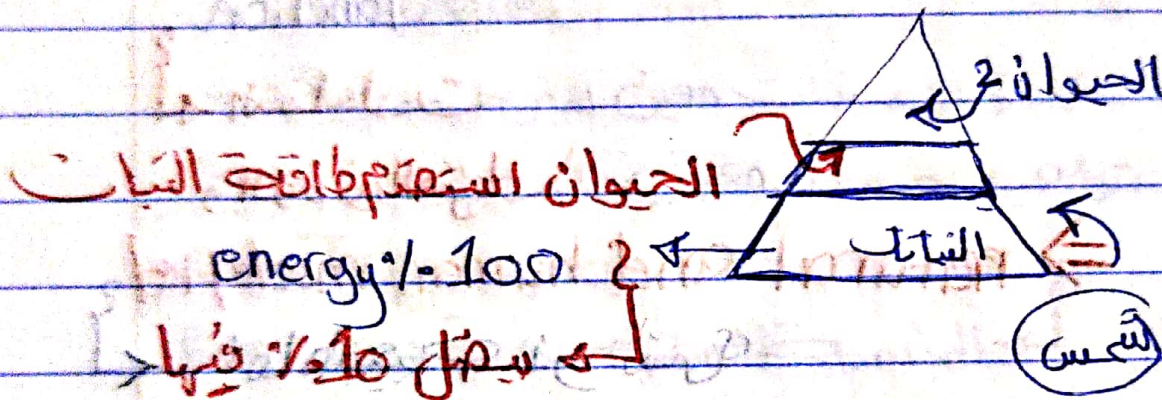 الحيوان 2
الحيوان استخدم طاقة النبات
النباتات
energy % 100
10 % فيها
شمس